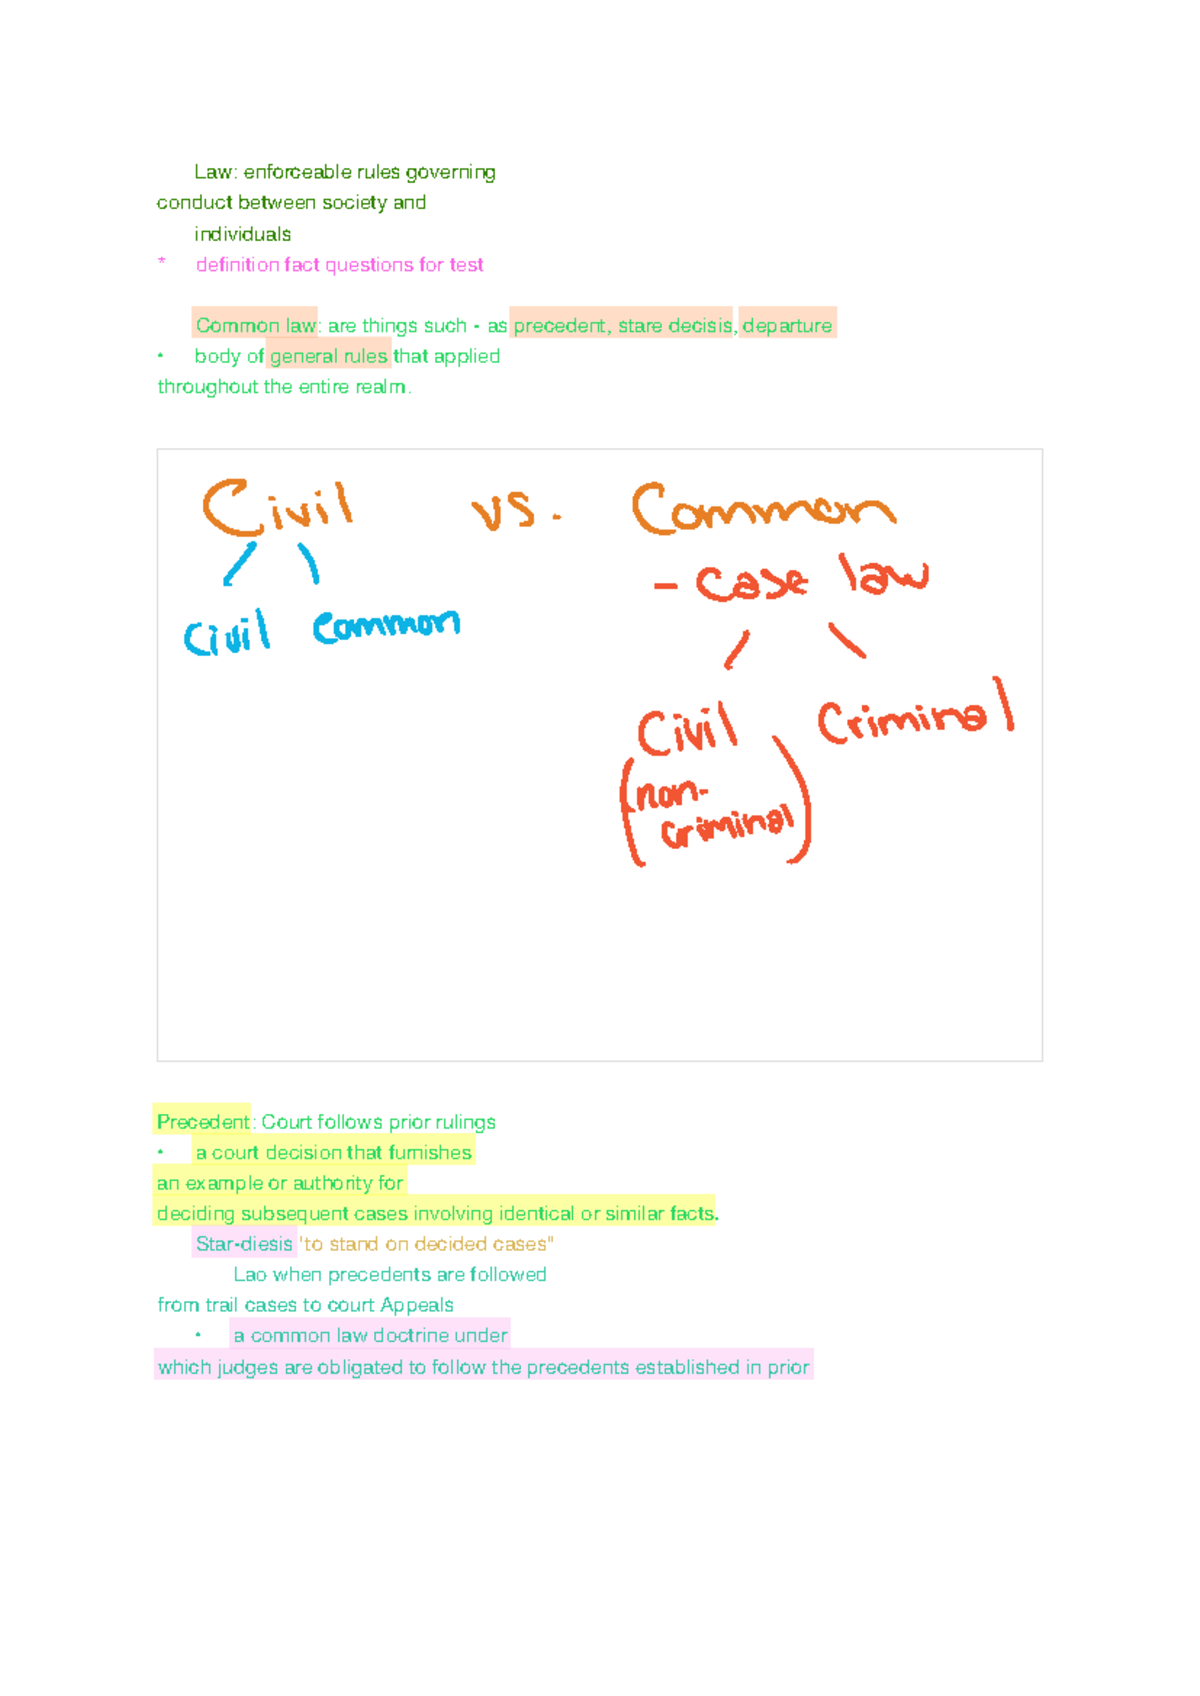 Law: enforceable rules governing
conduct between society and
individuals
* definition fact questions for test
Common law: are things such - as precedent, stare decisis, departure
• body of general rules that applied
throughout the entire realm.
Civil vs. Common
- case law
civil common
Civil Criminal
(non-
criminal)
Precedent: Court follows prior rulings
• a court decision that furnishes
an example or authority for
deciding subsequent cases involving identical or similar facts.
Star-diesis 'to stand on decided cases"
Lao when precedents are followed
from trail cases to court Appeals
• a common law doctrine under
which judges are obligated to follow the precedents established in prior